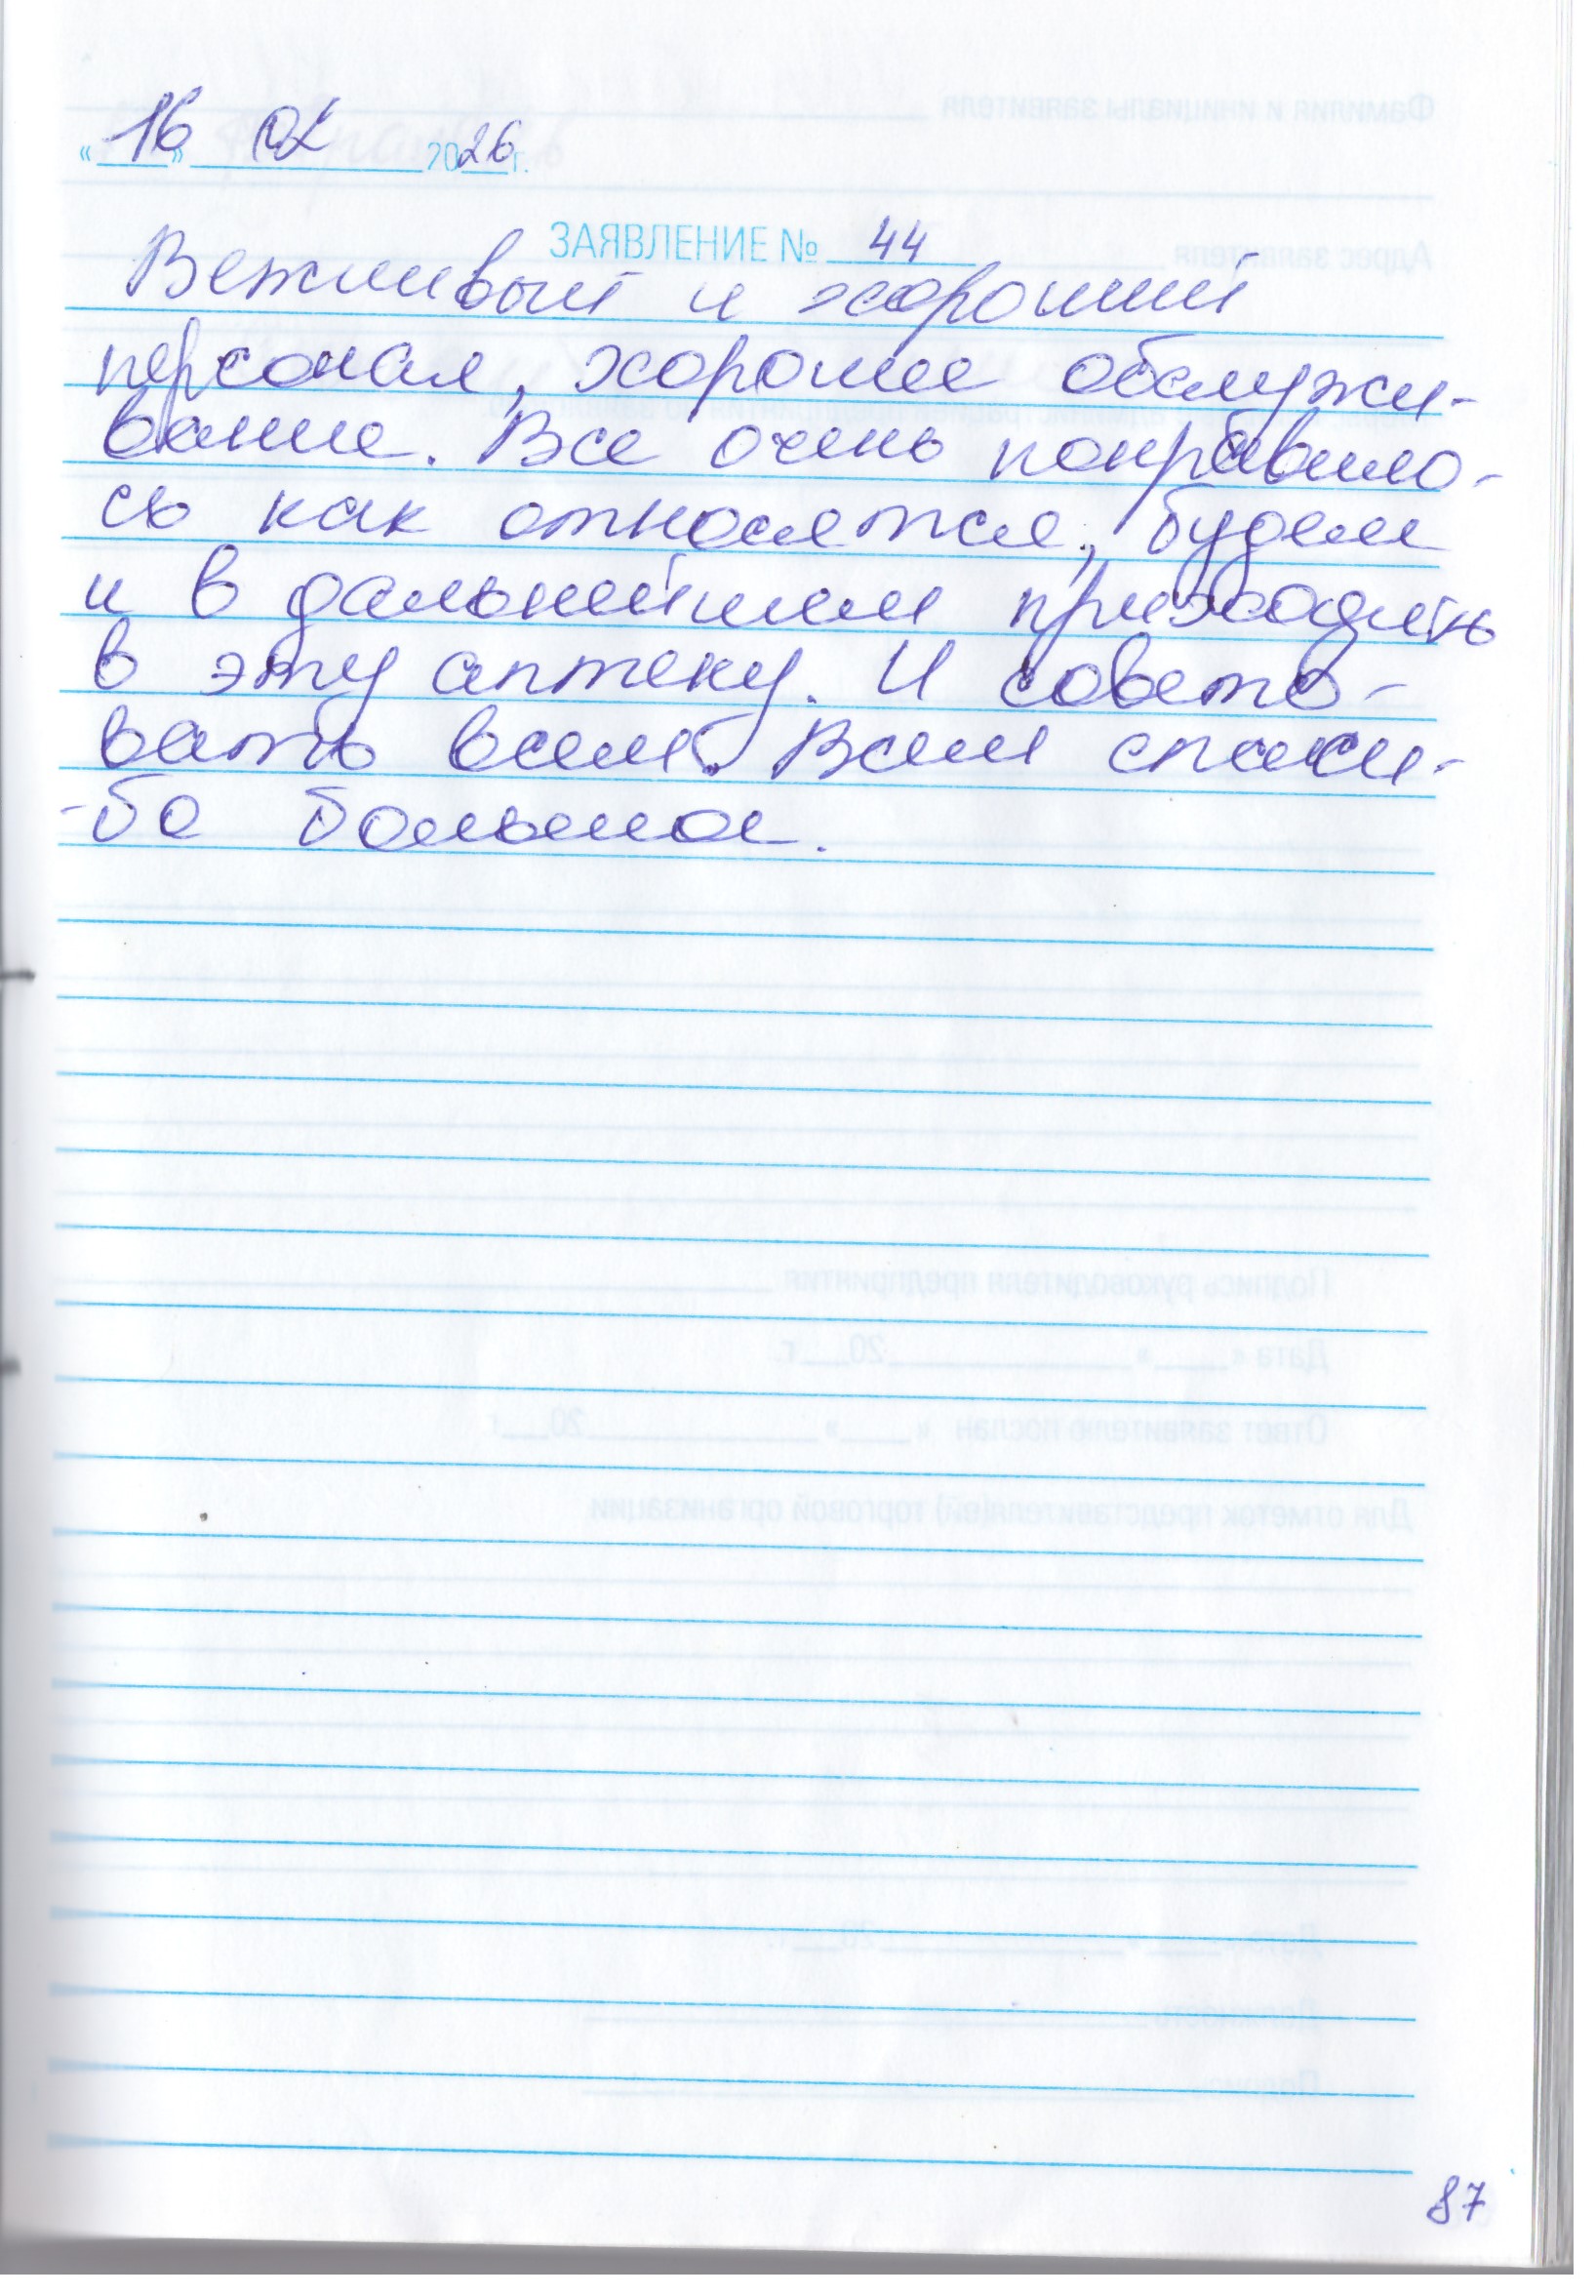 «16» 02 2026г.
ЗАЯВЛЕНИЕ № 44
Вежливый и хороший
персонал, хорошее обслужи-
вание. Все очень понравило-
сь как относятся, будем
и в дальнейшем приходить
в эту аптеку. И совето-
вать всем. Всем спаси-
-бо большое.
87